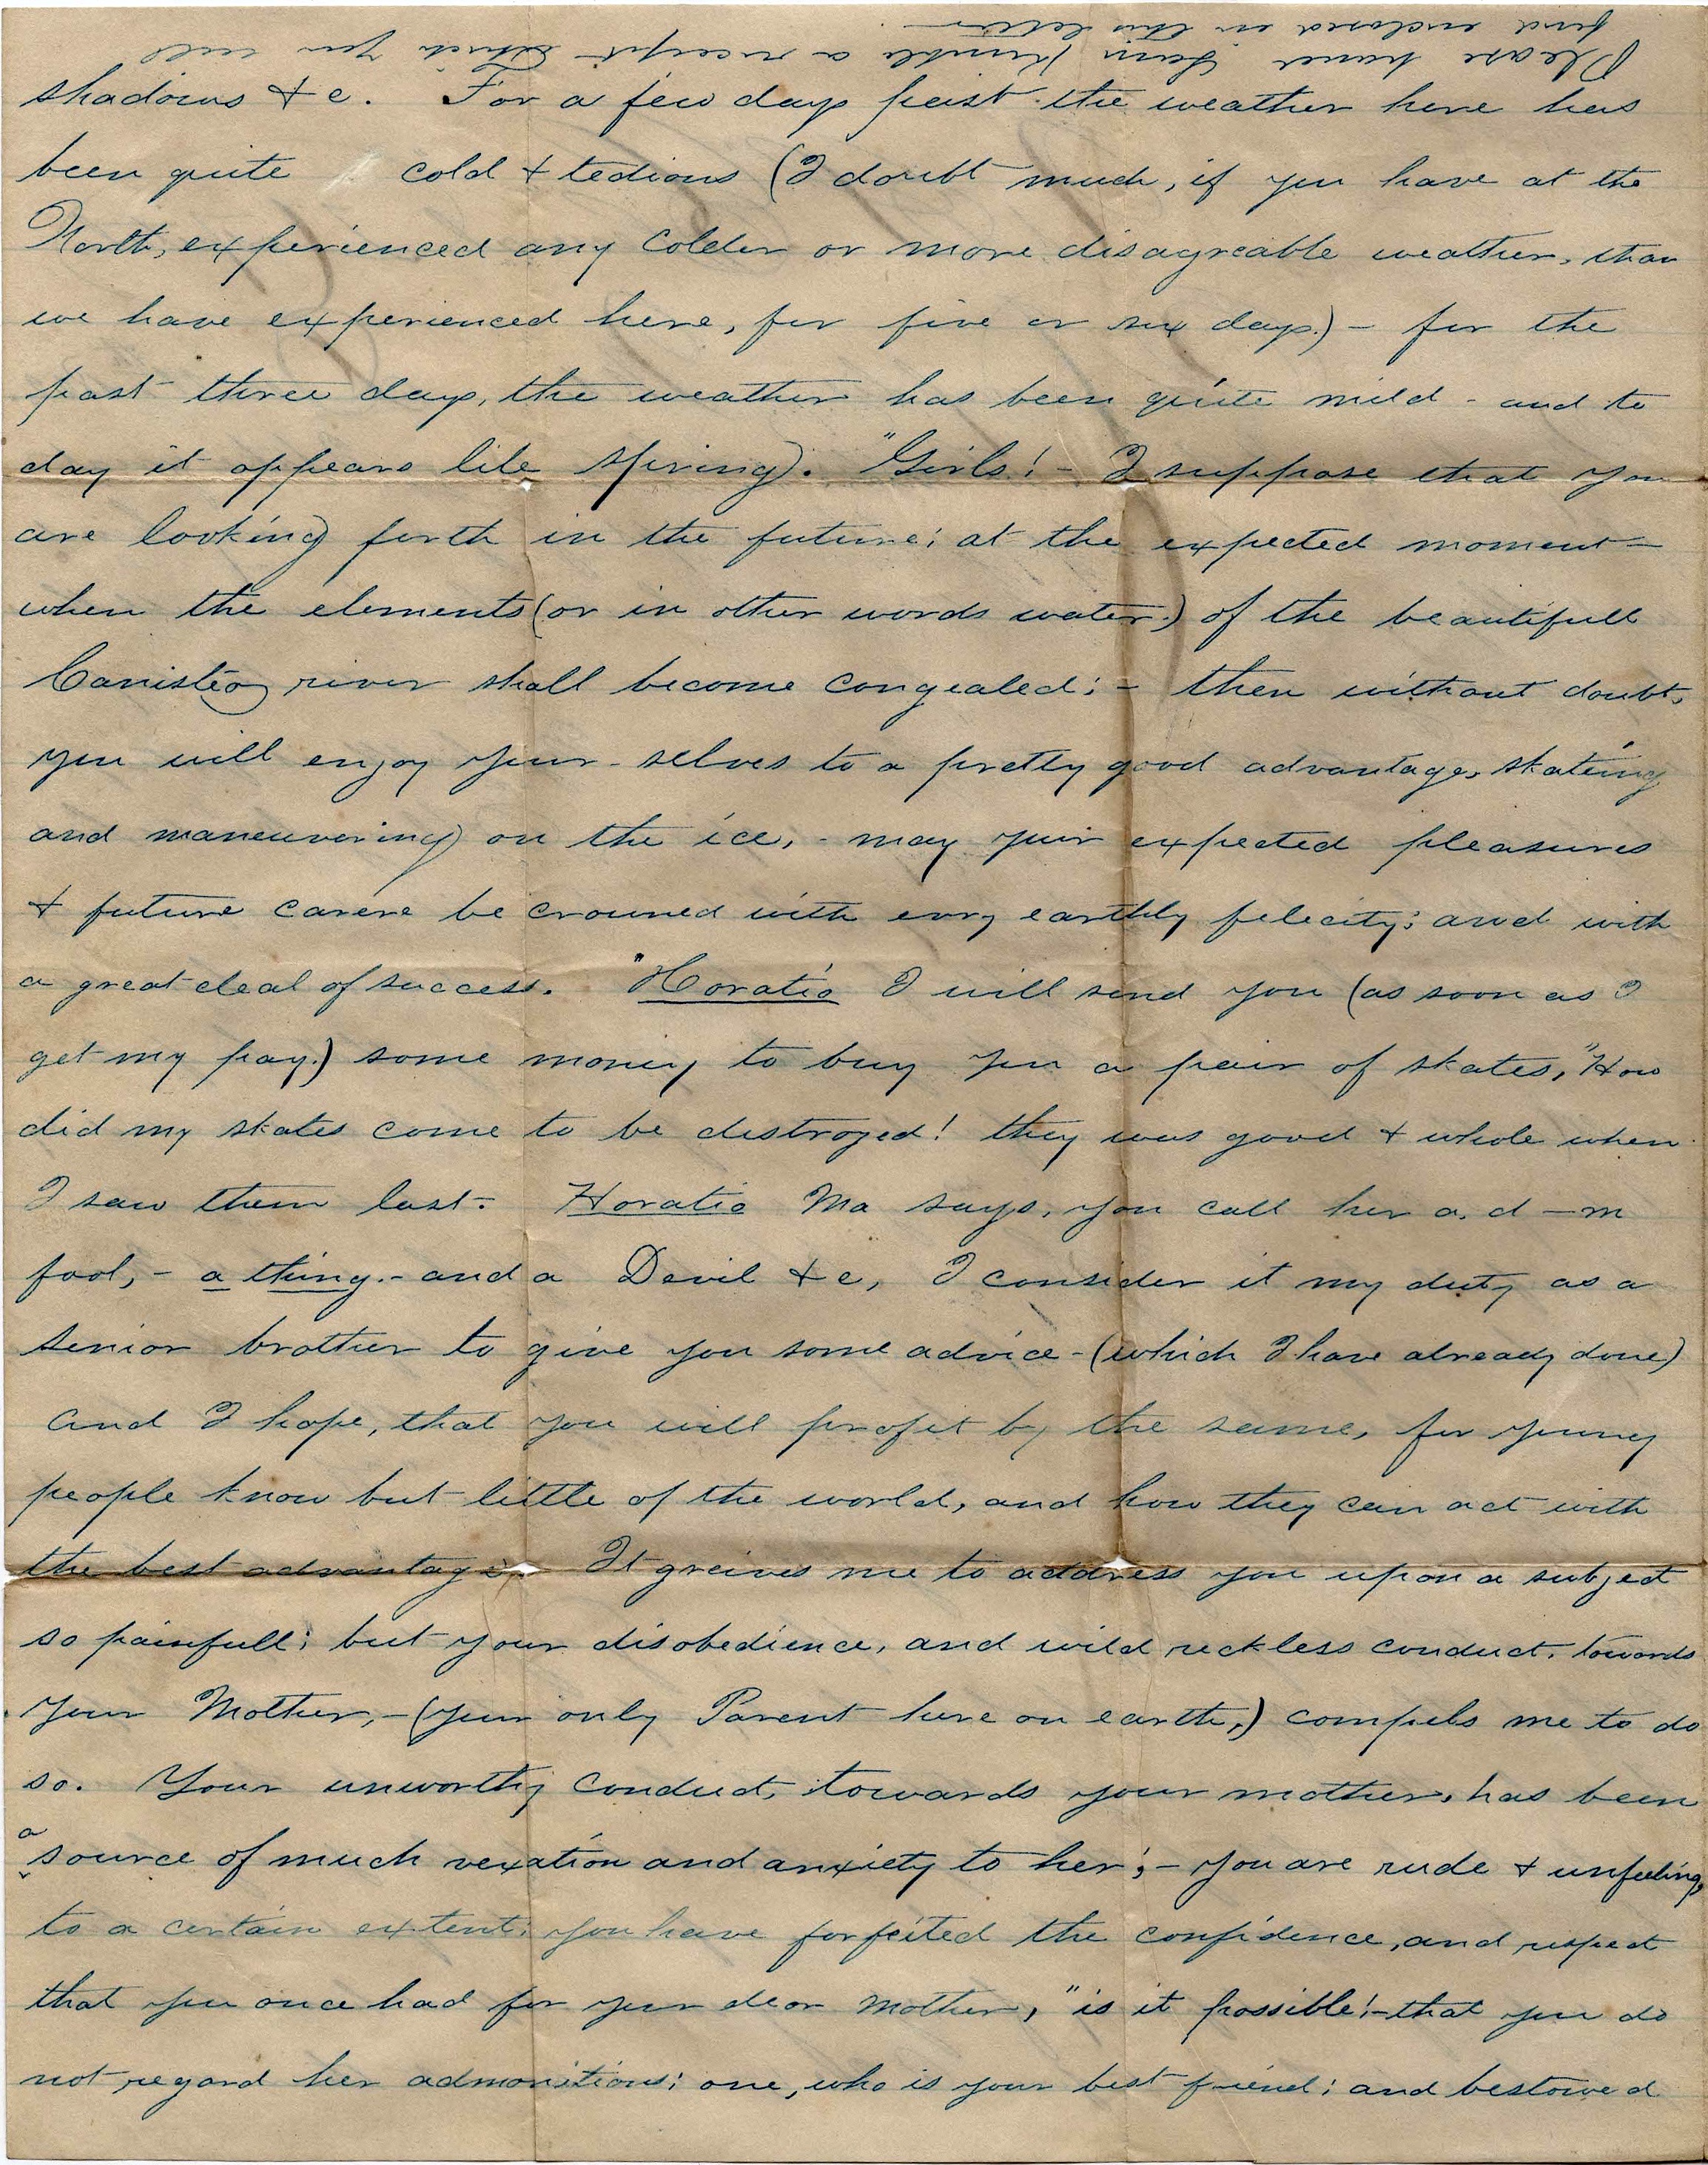 Please hand Levi Kimble a receipt which you will
find enclosed in this letter
shadows & c. For a few days past the weather here has
been quite cold & tedious (I doubt much, if you have at the
North, experienced any colder or more disagreable weather, than
we have experienced here, for five or six days.) - for the
past three days, the weather has been quite mild - and to
day it appears like spring). "Girls! - I suppose that you
are looking forth in the future; at the expected moment -
when the elements (or in other words water.) of the beautifull
Canisteo river shall become congealed; - then without doubt,
you will enjoy your-selves to a pretty good advantage, skating
and maneuvering on the ice, - may your expected pleasures
& future carere be crowned with evry earthly felicity; and with
a great deal of success. "Horatio I will send you (as soon as I
get my pay.) some money to buy you a pair of skates, "How
did my skates come to be distroyed! they was good & whole when
I saw them last. Horatio Ma says, you call her a, d-m
fool, - a thing. - and a Devil & c, I consider it my duty as a
senior brother to give you some advice - (which I have already done)
and I hope, that you will profit by the same, for young
people know but little of the world, and how they can act with
the best advantage. It greives me to address you upon a subject
so painfull; but your disobedience, and wild reckless conduct, towards
your Mother, - (your only Parent here on earth,) compels me to do
so. Your unworthy conduct, towards your mother, has been
a source of much vexation and anxiety to her; - you are rude & unfeeling,
to a certain extent; you have forfeited the confidence, and respect
that you once had for your dear Mother, "is it possible! - that you do
not regard her admonitions; one, who is your best friend; and bestowed